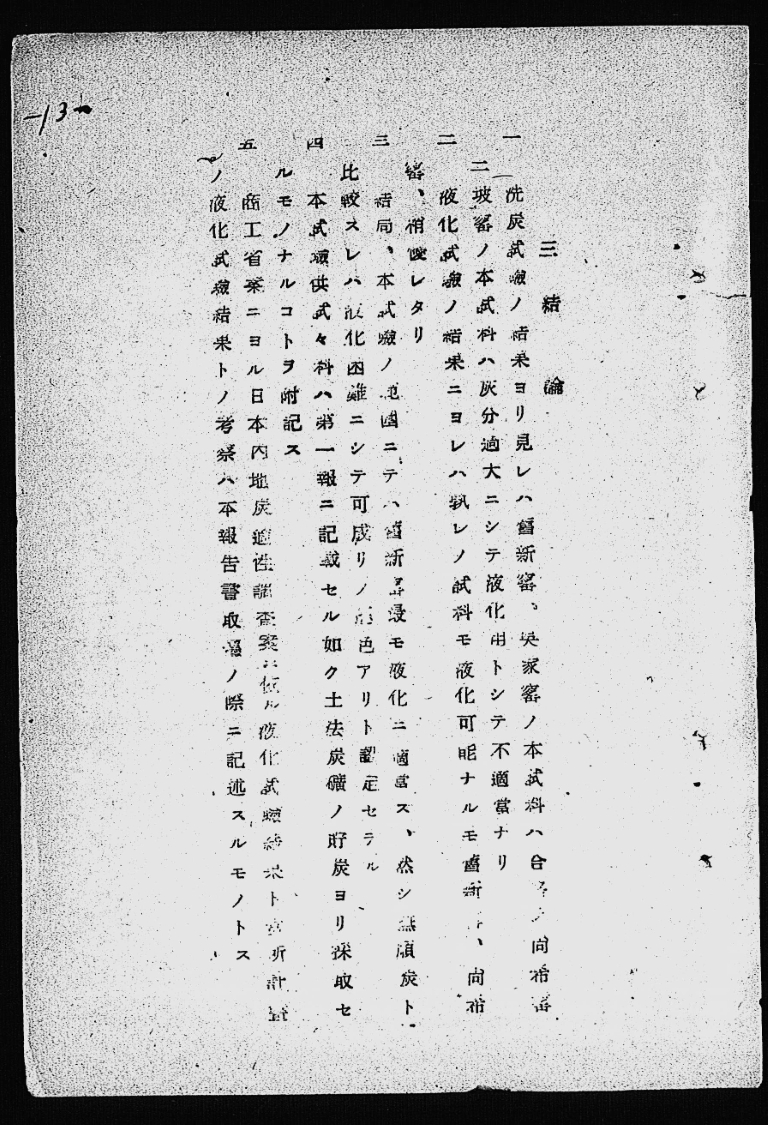 -13-
三 結 論
一 洗炭試驗ノ結果ヨリ見レハ舊新窰、吳家窰ノ本試料ハ合 向
二坡窰ノ本試料ハ灰分過大ニシテ液化用トシテ不適當ナリ
二 液化試驗ノ結果ニヨレハ孰レノ試料モ液化可能ナルモ舊新 、向
窰、稍優レタリ
三 結局、本試驗ノ範圍ニテハ舊新窰最モ液化ニ適當ス、然シ撫順炭ト
比較スレハ液化困難ニシテ可成リノ 色アリト認定セラル
四 本試驗供試々料ハ第一報ニ記載セル如ク土法炭礦ノ貯炭ヨリ採取セ
ルモノナルコトヲ附記ス
五 商工省案ニヨル日本内地炭適性調査案ニ依ル液化試驗結果ト當所計畫
ノ液化試驗結果トノ考察ハ本報告書取纒ノ際ニ記述スルモノトス